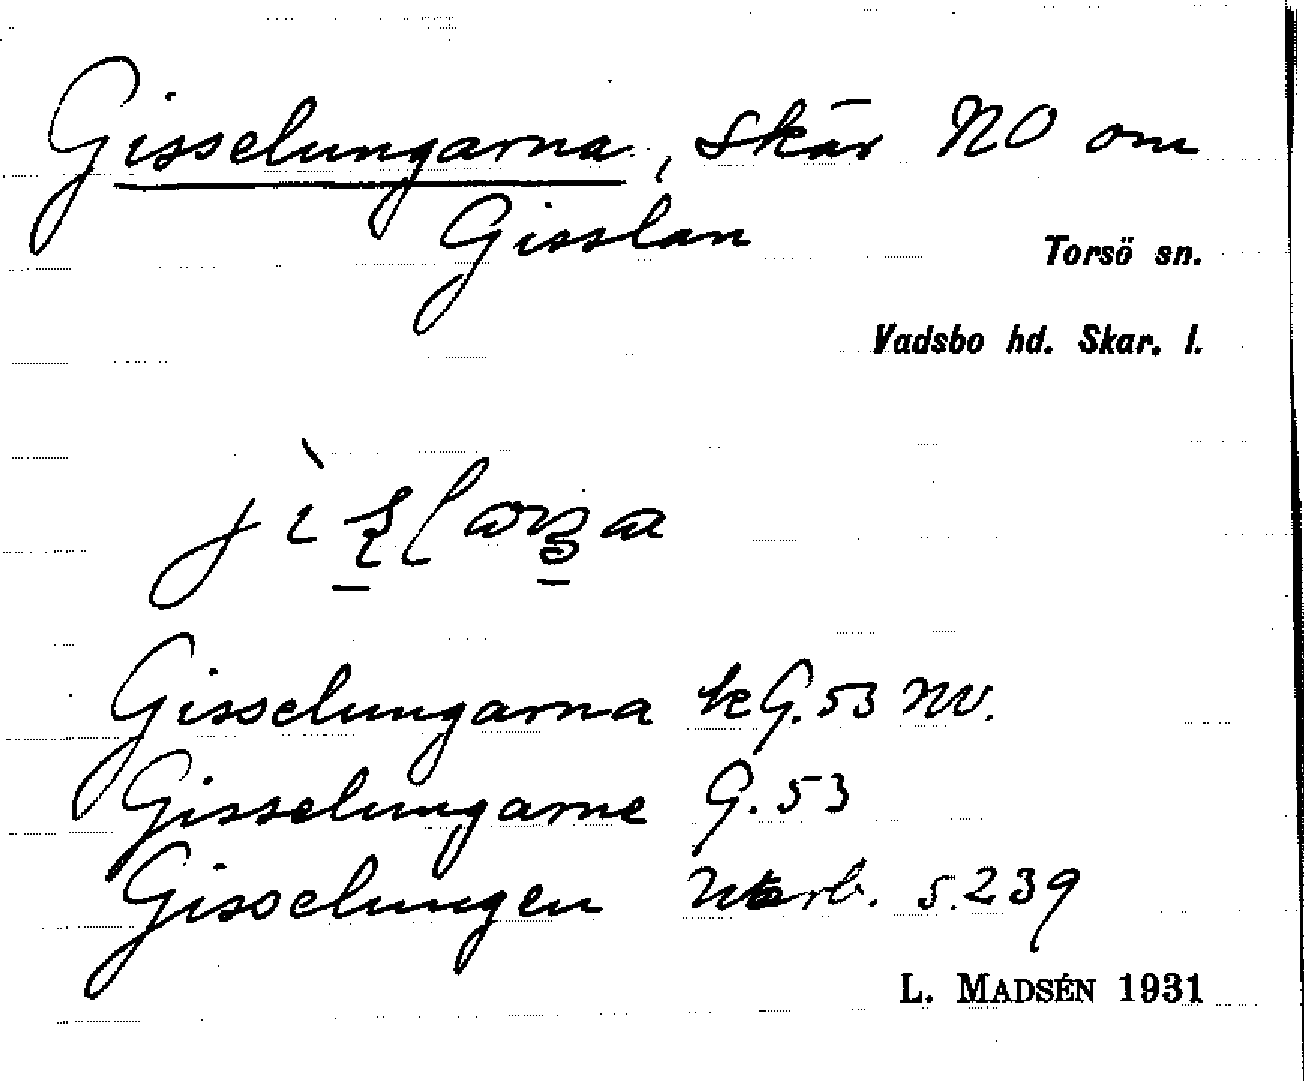 Gisselungarna, skär NO om
Gisslan
Torsö sn.
Vadsbo hd. Skar. l.
Gisselungarna kG. 53 NV.
Gisselungarne G. 53
Gisselungen s. 239
L. MADSÉN 1931